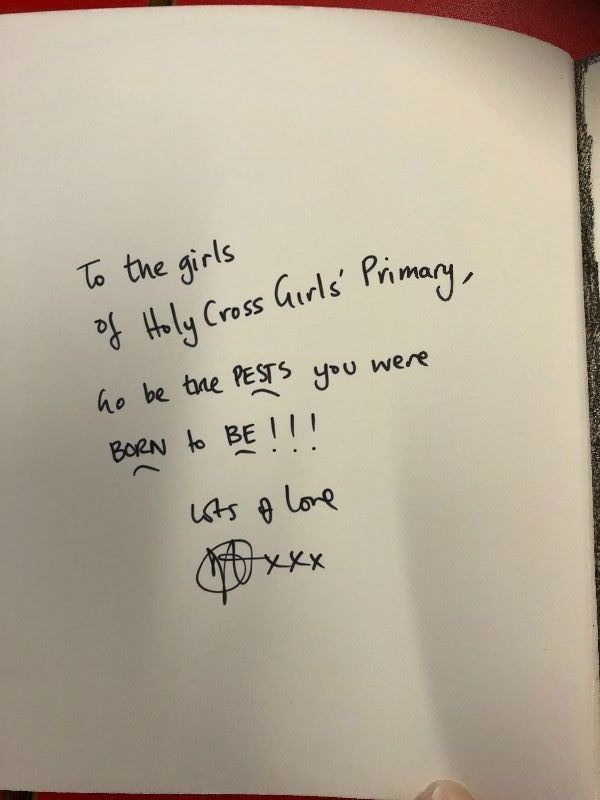 To the girls
of Holy Cross Girls' Primary,
Go be the PESTS you were
BORN to BE!!!
Lots of love
xxx